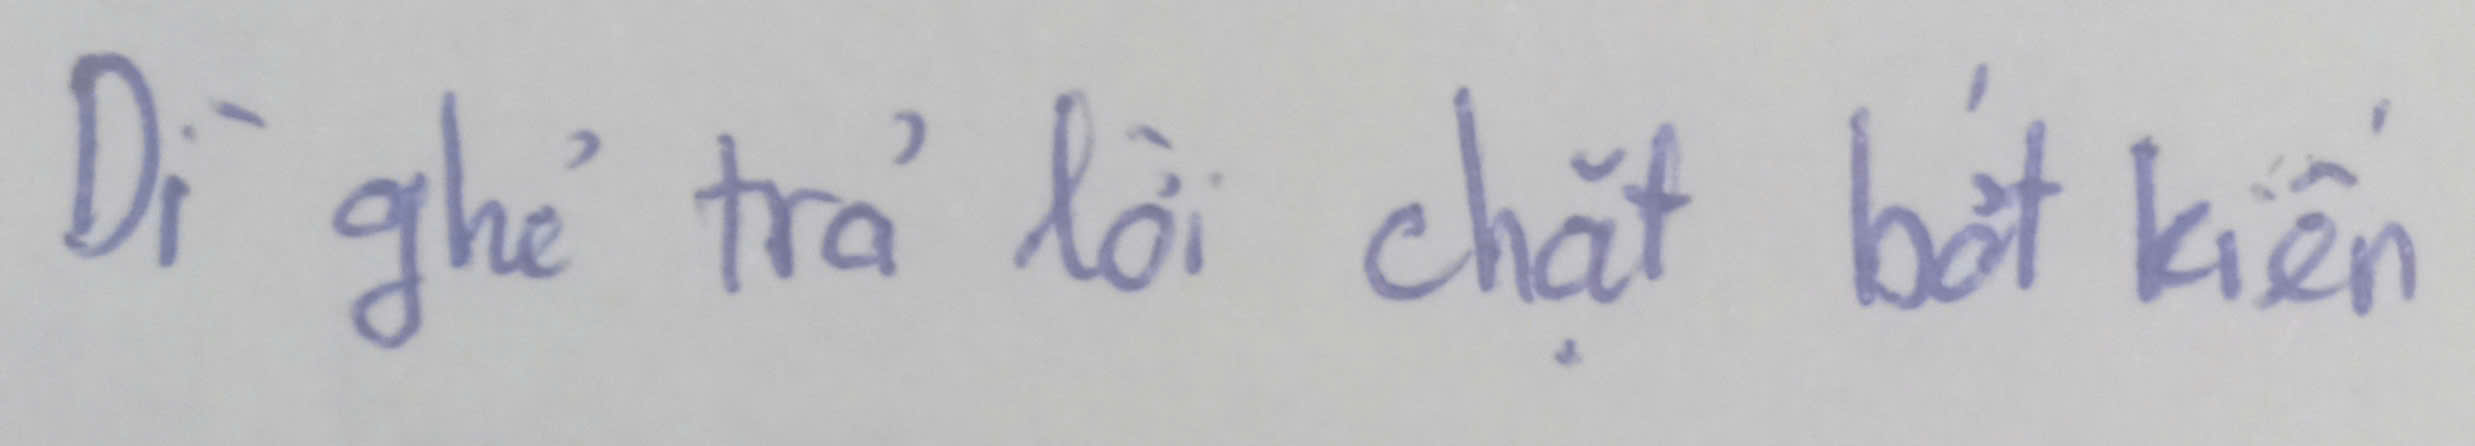 Dì ghẻ trả lời chặt bớt kiến